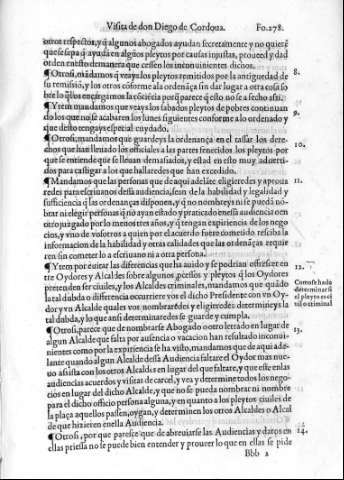 Visita de don Diego de Cordoua. Fo.278.
otros respectos, y q̃ algunos abogados ayudan secretamente y no quierẽ
que se sepa q̃ ayuda en algũos pleytos por causas injustas, proueed y dad
orden en esto demanera que cessen los inconuinientes dichos.
¶Otrosi, mãdamos q̃ veays los pleytos remitidos por la antiguedad de 8.
su remissiõ, y los otros cõforme ala ordenãça sin dar lugar a otra cosa so
bre lo q̃ los encargamos la
¶Ytem mandamos que veays los sabados pleytos de pobres y continuan 9.
do los que no se acabaren los lunes siguientes conforme a lo ordenado y
que desto tengays especial cuydado.
¶Otrosi, mandamos que guardeys la ordenança en el tassar los dere- 10.
chos que han lleuado los officiales a las partes fenecidos los pleytos por
que se entiende que se lleuan demasiados, y estad en esto muy aduerti-
dos para castigar a los que hallaredes que han excedido.
¶Mandamos que las personas que de aqui adelãte eligieredes y aproua 11.
redes para escriuanos dessa audiencia, sean de la habilidad y legalidad y
sufficiencia q̃ las ordenanças disponen, y q̃ no nombreys ni se puedã nõ-
brar ni elegir personas q̃ no ayan estado y praticado en essa audiencia o en
otro juzgado por lo menos tres años, y q̃ tengan expiriencia de los nego
cios, y vno de vosotros a quien por el acuerdo fuere cometido resciba la
informacion de la habilidad y otras calidades que las ordenãças requie
ren sin cometer lo a escriuano ni a otra persona.
¶Ytem por euitar las differencias que ha auido y se podrian offrescer en 12.
tre Oydores y Alcaldes sobre algunos pleytos q̃ los Oydores
pretenden ser ciuiles, y los Alcaldes criminales, mandamos que quãdo
la tal dubda o differencia occurriere vos el dicho Presidente con vn Oy-
dor y vn Alcalde quales vos nombraredes y eligieredes determineys la
tal dubda, y lo que ansi determinaredes se guarde y cumpla.
determinar si
el pleyto es ci
uil o criminal
¶Otrosi, parece que de nombrarse Abogado o otro letrado en lugar de 13.
algun Alcalde que falta por ausencia o vacacion han resultado inconui-
nientes como por la expiriencia se ha visto, mandamos que de aqui ade-
lante quando algun Alcalde dessa Audiencia faltare el Oydor mas nue-
uo assista con los otros Alcaldes en lugar del que faltare, y que este en las
audiencias acuerdos y visitas de carcel, y vea y determine todos los nego-
cios en lugar del dicho Alcalde, y que no se pueda nombrar ni nombre
para el dicho officio persona alguna, y en quanto a los pleytos ciuiles de
la plaça aquellos passen, oygan, y determinen los otros Alcaldes o Alcal
de que hizieren en essa Audiencia.
¶Otrosi, por que paresce que de abreuiarse las Audiencias y darse en 14.
ellas priessa no se puede bien entender y proueer lo que en ellas se pide
Bbb 2